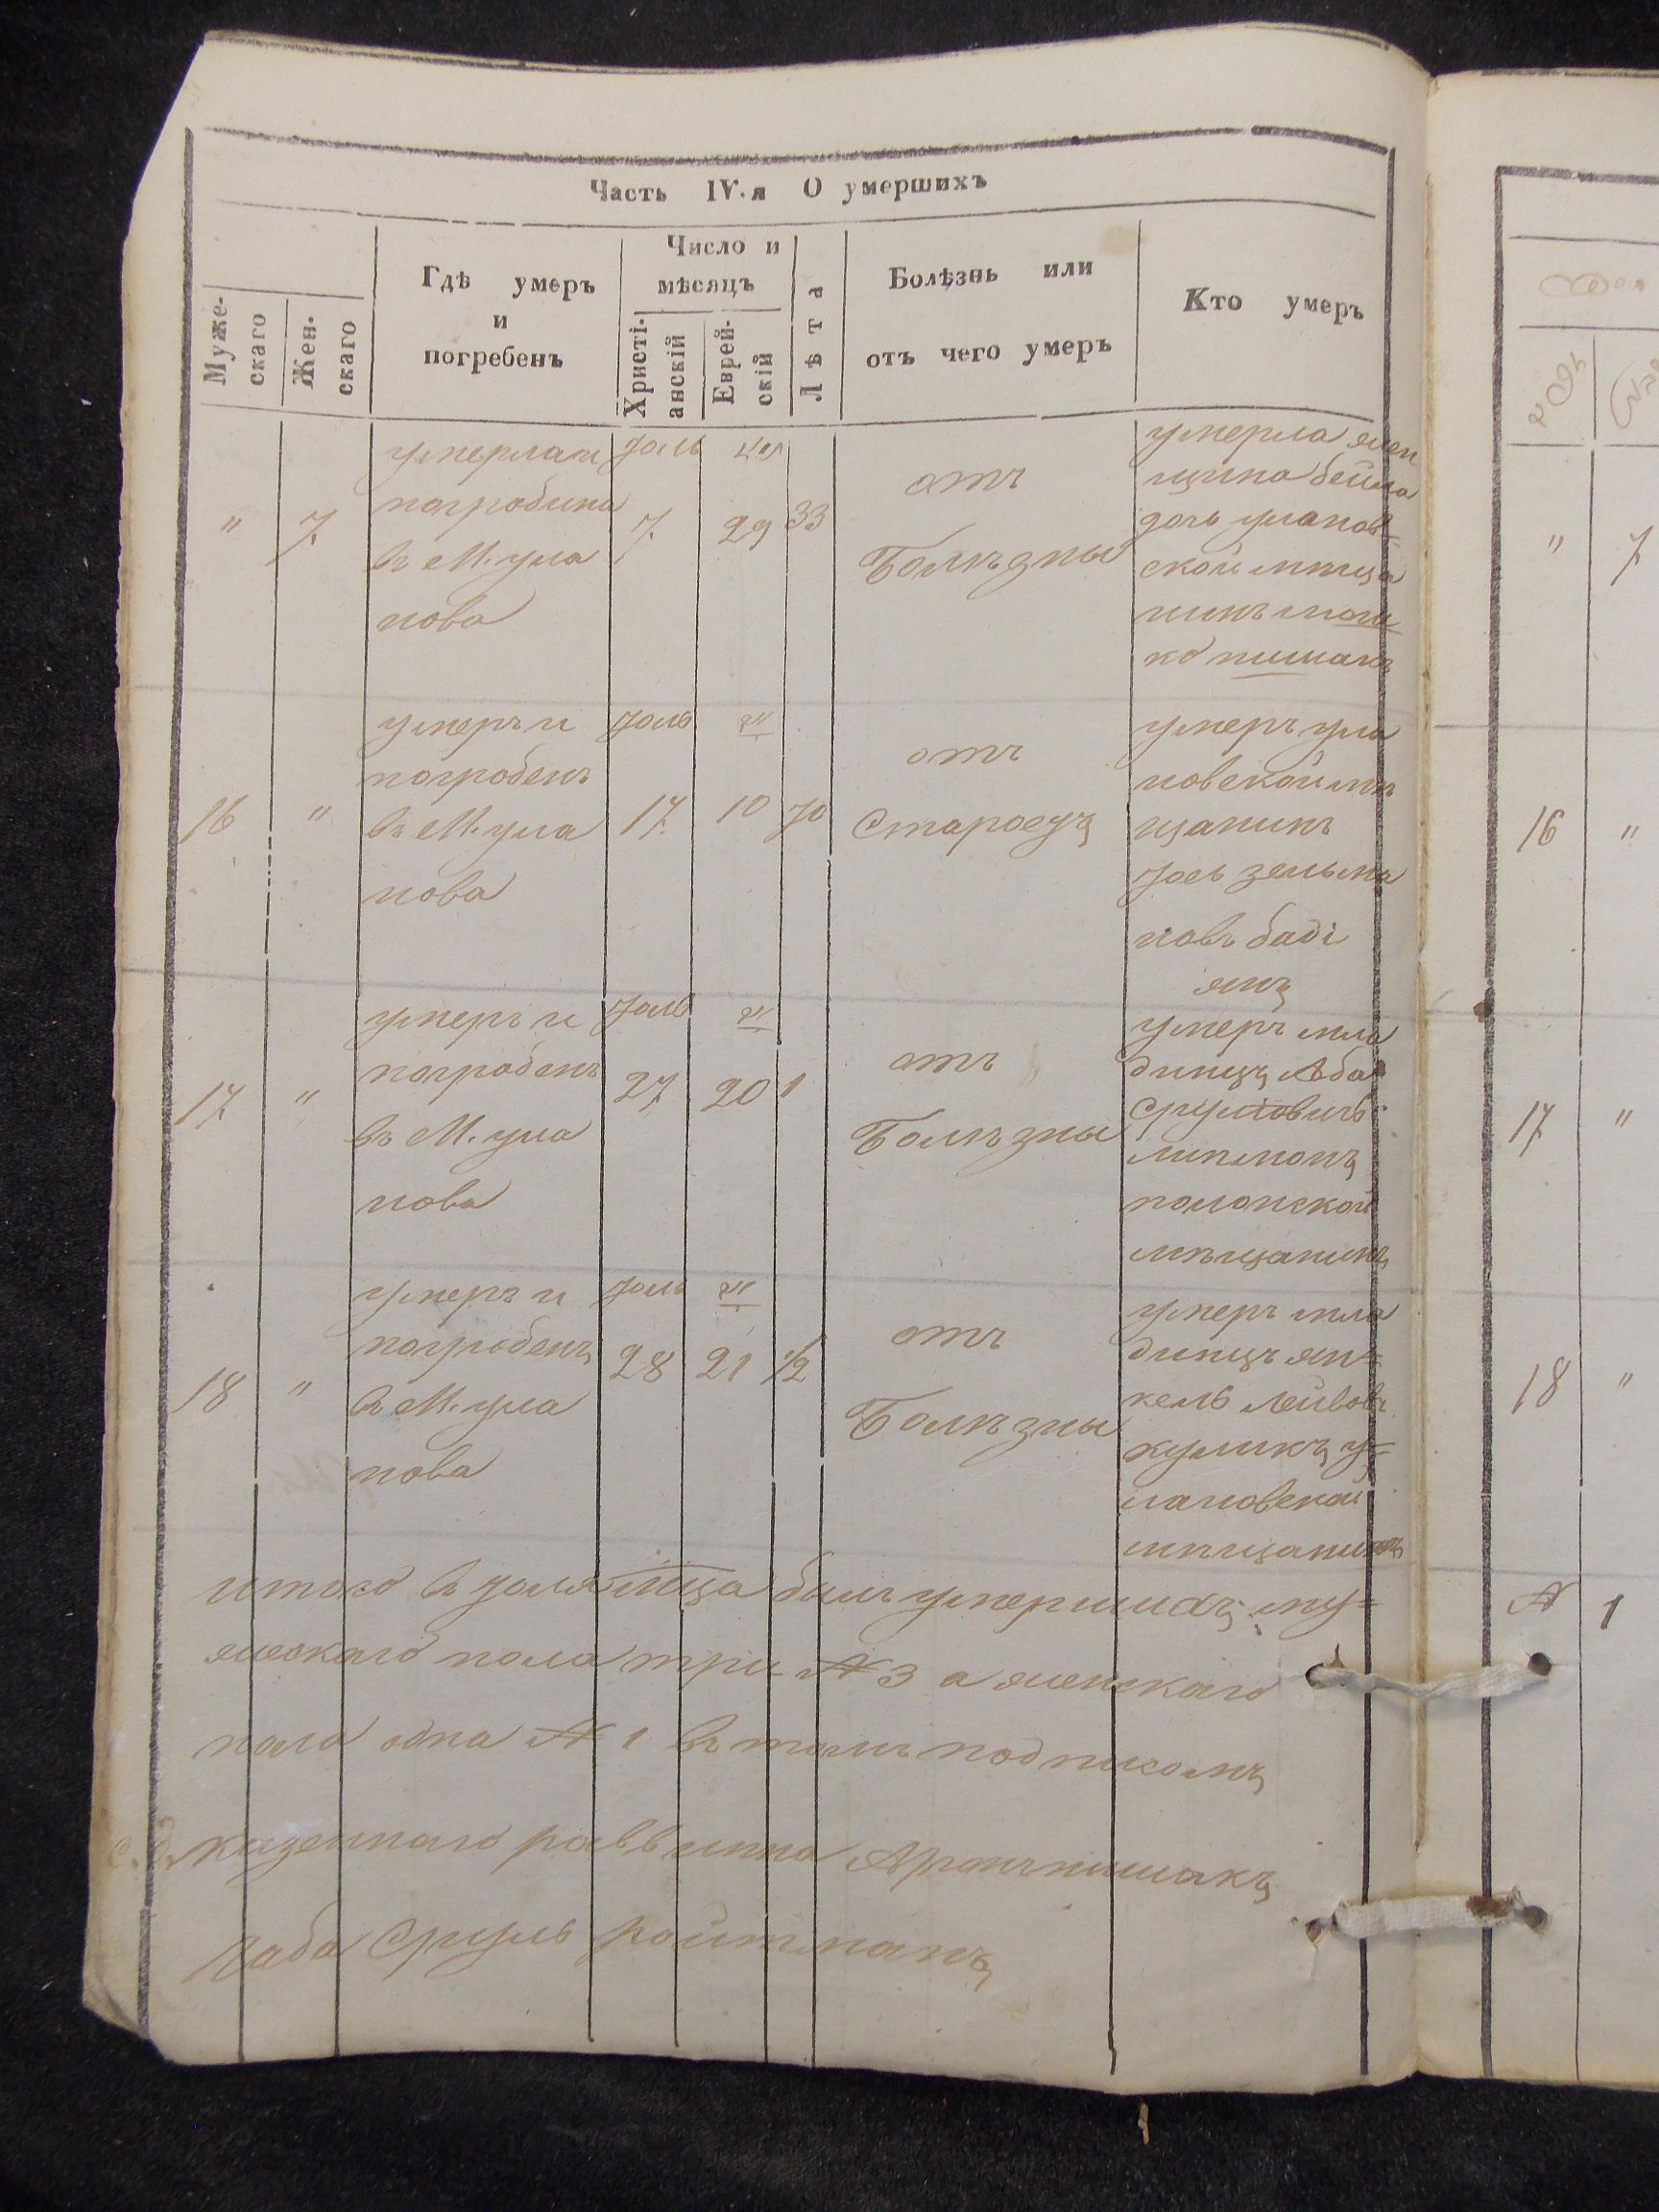 Часть IV.я О умершихъ
Муже-
скаго
Жен-
скаго
Гдѣ умеръ
и
погребенъ
Число и
мѣсяцъ
Христі-
анскій
Еврей-
скій
Лѣта
Болѣзнь или
отъ чего умеръ
Кто умеръ
"
7
умерла и
погробина
въ М. ула
нова
Іоль
7
29
33
отъ
Болѣзны
умерла жен
щина бейла
дочь уланов=
ской мѣща
нинъ мош
ко пишакъ
16
"
умеръ и
погробенъ
въ М. ула
нова
Іоль
17
10
70
отъ
Старосц
умеръ ула
новской мѣ
щанинъ
Іось зельма
новъ баді
янъ
17
"
умеръ и
погробенъ
въ М. ула
нова
Іоль
27
20
1
отъ
Болѣзны
умеръ мла
динцъ Аба
Срулювичъ
липманъ
полонской
мѣщанинъ
18
"
умеръ и
погробенъ
въ М. ула
нова
Іоль
28
21
1/2
отъ
Болѣзны
умеръ мла
динцъ ян=
кель Лейбов
куликъ у=
лановской
мѣщанинъ
итого в Іоля мца было умершихъ му=
жескаго пола три № 3 а женскаго
пола одна № 1 въ томъ подписомъ
казеннаго раввина Аронъ пишакъ
габа Сруль Ройтманъ
"
7
16
"
17
"
18
"
№
1